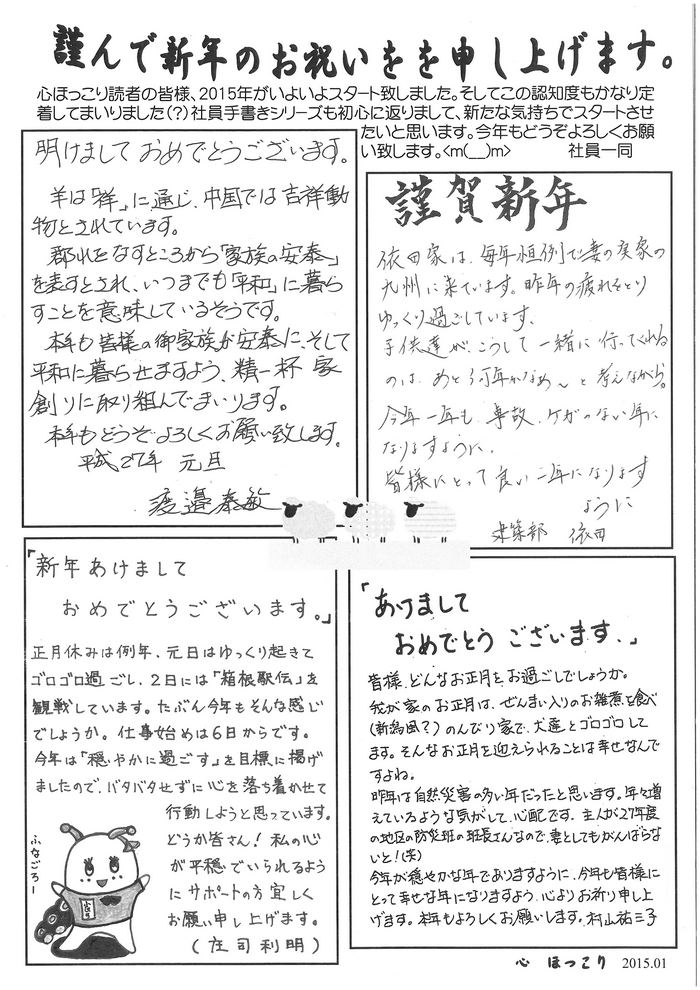 謹んで新年のお祝いをを申し上げます。
心ほっこり読者の皆様、2015年がいよいよスタート致しました。そしてこの認知度もかなり定
着してまいりました(?)社員手書きシリーズも初心に返りまして、新たな気持ちでスタートさせ
たいと思います。今年もどうぞよろしくお願
い致します。<m(__)m> 社員一同
明けまして おめでとうございます。
羊は「祥」に通じ、中国では吉祥動
物とされています。
郡れをなすところから「家族の安泰」
を表すとされ、いつまでも「平和」に暮ら
すことを意味しているそうです。
本年も皆様の御家族が安泰に、そして
平和に暮らせますよう、精一杯 家
創りに取り組んでまいります。
本年もどうぞよろしくお願い致します。
平成27年 元旦
渡邉泰敏
謹賀新年
依田家は、毎年恒例で妻の実家の
九州に来ています。昨年の疲れをとり
ゆっくり過ごしています。
子供達が、こうして一緒に行ってくれる
のは、あと何年かなぁ〜と考えながら。
今年一年も、事故、ケガのない年に
なりますように。
皆様にとって良い一年になります
ように
建築部 依田
「新年あけまして
おめでとうございます。」
正月休みは例年、元日はゆっくり起きて
ゴロゴロ過ごし、2日には「箱根駅伝」を
観戦しています。たぶん今年もそんな感じ
でしょうか。仕事始めは6日からです。
今年は「穏やかに過ごす」を目標に掲げ
ましたので、バタバタせずに心を落ち着かせて
行動しようと思っています。
どうか皆さん!私の心
が平穏でいられるよう
にサポートの方宜しく
お願い申し上げます。
(庄司利明)
ふなごろー
「あけまして
おめでとう ございます。」
皆様、どんなお正月をお過ごしでしょうか。
我が家のお正月は、ぜんまい入りのお雑煮を食べ
(新潟風?)のんびり家で、犬達とゴロゴロして
ます。そんなお正月を迎えられることは幸せなんで
すよね。
昨年は自然災害の多い年だったと思います。年々増
えているような気がして、心配です。主人が27年度
の地区の防災班の班長さんなので、妻としてもがんばらな
いと!(笑)
今年が穏やかな年でありますように、今年も皆様に
とって幸せな年になりますよう、心よりお祈り申し上
げます。本年もよろしくお願いします。村山祐三子
心 ほっこり 2015.01